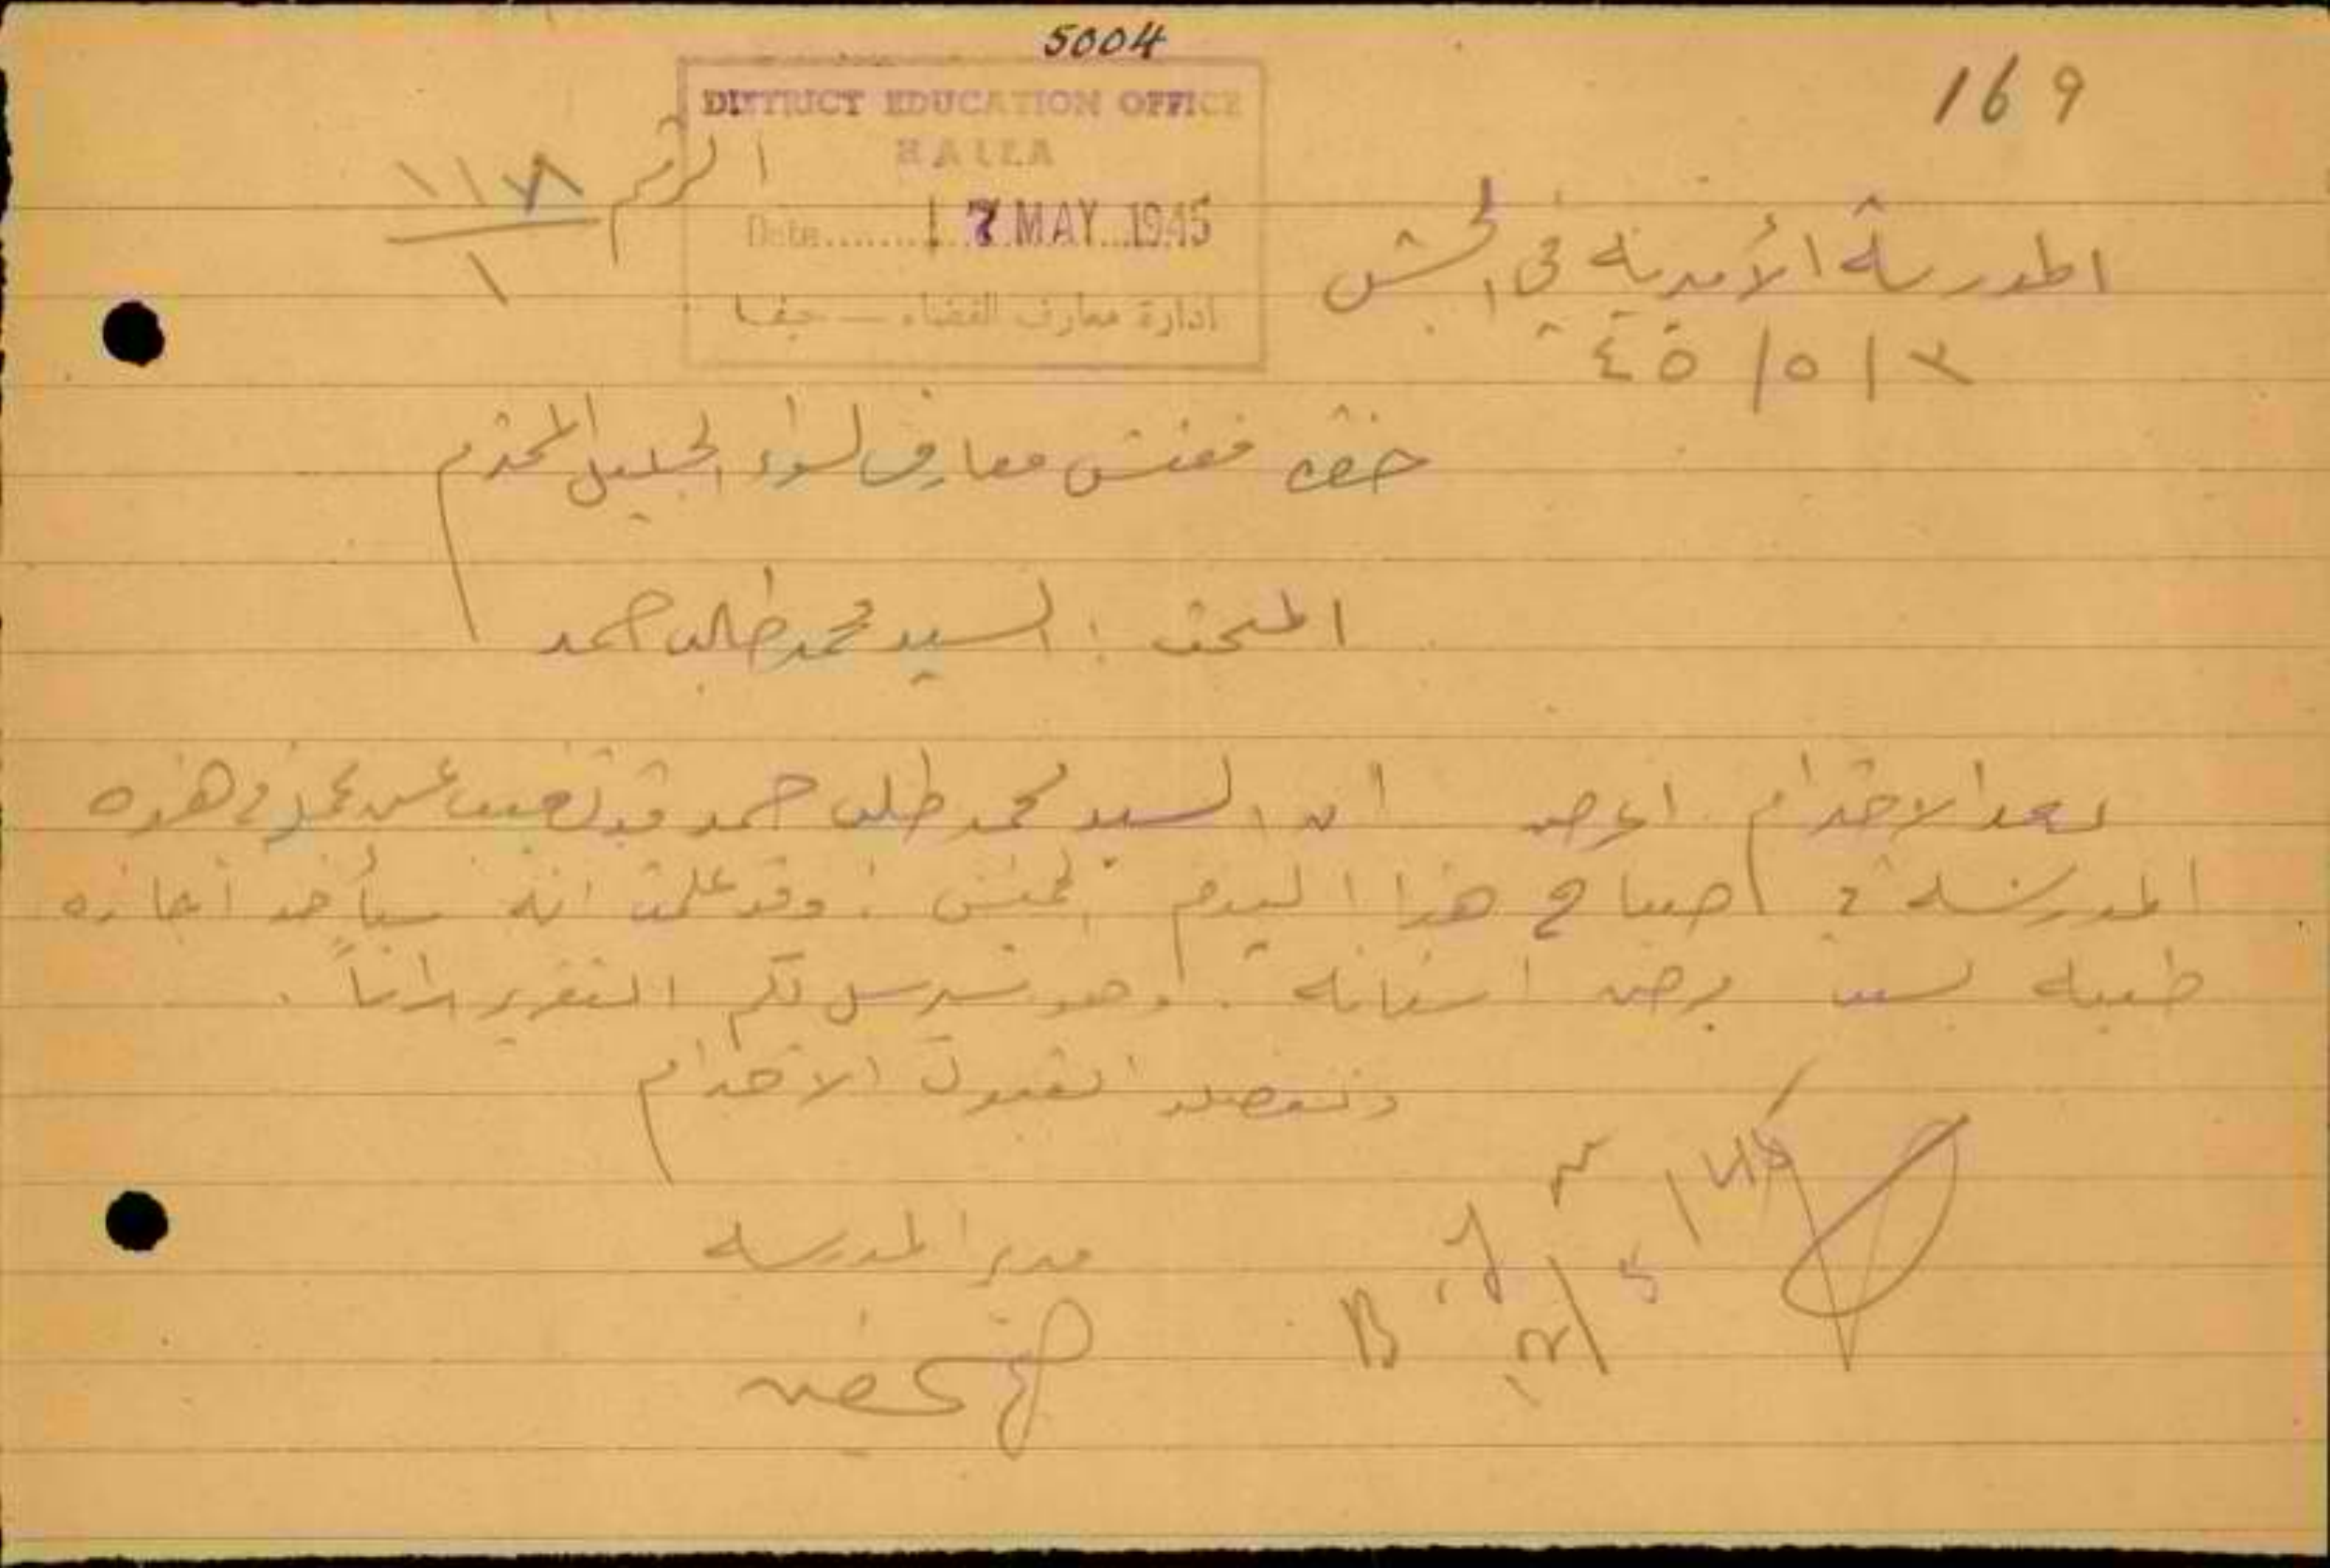 5004
169
DISTRICT EDUCATION OFFICE
HAIFA
Date......... 17 MAY 1945
ادارة معارف القضاء — حيفا
الرقم ١١٧٨
١
المدرسة الأميرية في الجش
٤٥ / ٥ /
حضرة مفتش معارف لواء الجليل المحترم
المبحث : السيد محمد طلب حمد
بعد الاحترام اعرض ان السيد محمد طلب حمد قد تغيب عن عمله في هذه
المدرسة في صباح هذا اليوم الخميس . وقد علمت انه سيأخذ اجازه
طبيه لسبب مرض اسنانه . وهو سيرسل لكم التقرير
وتفضلوا بقبول الاحترام
مدير المدرسه
B